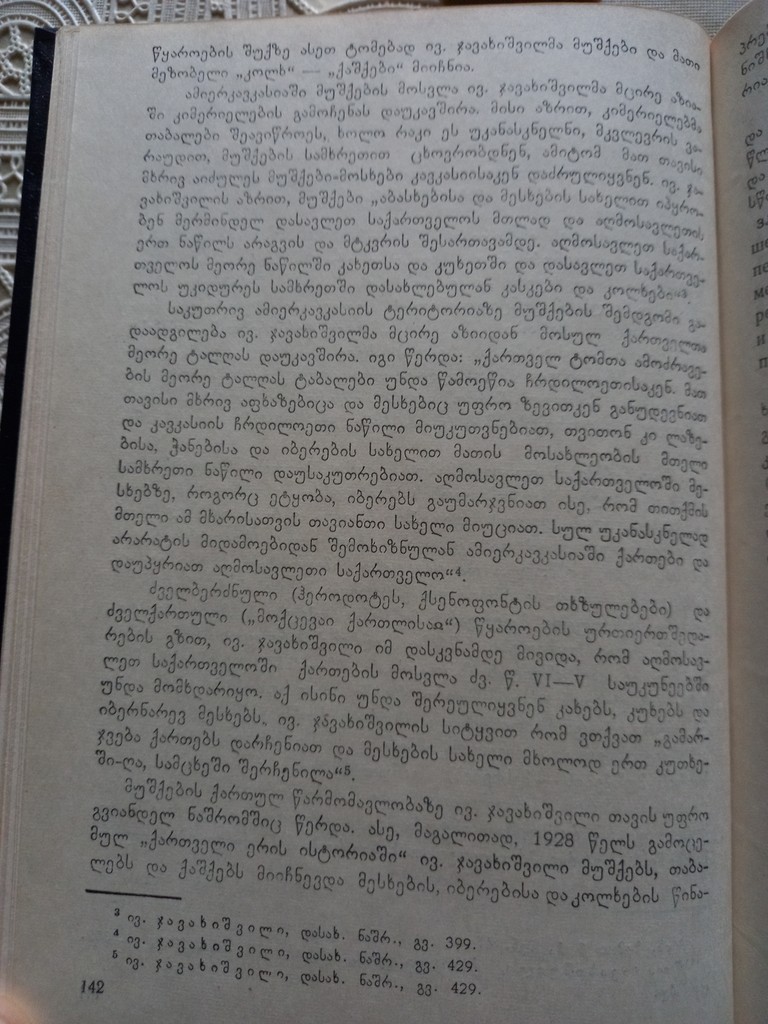 წყაროების შუქზე ასეთ ტომებად ივ. ჯავახიშვილმა მუშქები და მათი
მეზობელი „კოლხ“ — „ქაშქები“ მიიჩნია.
ამიერკავკასიაში მუშქების მოსვლა ივ. ჯავახიშვილმა მცირე აზია-
ში კიმერიელების გამოჩენას დაუკავშირა. მისი აზრით, კიმერიელებმა
თაბალები შეავიწროეს, ხოლო რაკი ეს უკანასკნელნი, მკვლევრის ვა-
რაუდით, მუშქების სამხრეთით ცხოვრობდნენ, ამიტომ მათ თავისი
მხრივ აიძულეს მუშქები-მოსხები კავკასიისაკენ დაძრულიყვნენ. ივ. ჯა-
ვახიშვილის აზრით, მუშქები „აბასხებისა და მესხების სახელით იპყრო-
ბენ მერმინდელ დასავლეთ საქართველოს მთლად და აღმოსავლეთის
ერთ ნაწილს არაგვის და მტკვრის შესართავამდე. აღმოსავლეთ საქარ-
თველოს მეორე ნაწილში კახეთსა და კუხეთში და დასავლეთ საქართვე-
ლოს უკიდურეს სამხრეთში დასახლებულან კასკები და კოლხები“³.
საკუთრივ ამიერკავკასიის ტერიტორიაზე მუშქების შემდგომი გა-
დაადგილება ივ. ჯავახიშვილმა მცირე აზიიდან მოსულ ქართველთა
მეორე ტალღას დაუკავშირა. იგი წერდა: „ქართველ ტომთა ამოძრავე-
ბის მეორე ტალღას ტაბალები უნდა წამოეწია ჩრდილოეთისაკენ. მათ
თავისი მხრივ აფხაზებიცა და მესხებიც უფრო ზევითკენ განუდევნიათ
და კავკასიის ჩრდილოეთი ნაწილი მიუკუთვნებიათ, თვითონ კი ლაზე-
ბისა, ჭანებისა და იბერების სახელით მათის მოსახლეობის მთელი
სამხრეთი ნაწილი დაუსაკუთრებიათ. აღმოსავლეთ საქართველოში მე-
სხებზე, როგორც ეტყობა, იბერებს გაუმარჯვნიათ ისე, რომ თითქმის
მთელი ამ მხარისათვის თავიანთი სახელი მიუციათ. სულ უკანასკნელად
არარატის მიდამოებიდან შემოხიზნულან ამიერკავკასიაში ქართები და
დაუპყრიათ აღმოსავლეთი საქართველო“⁴.
ძველბერძნული (ჰეროდოტეს, ქსენოფონტის თხზულებები) და
ძველქართული („მოქცევაი ქართლისაჲ“) წყაროების ურთიერთშედა-
რების გზით, ივ. ჯავახიშვილი იმ დასკვნამდე მივიდა, რომ აღმოსავ-
ლეთ საქართველოში ქართების მოსვლა ძვ. წ. VI—V საუკუნეებში
უნდა მომხდარიყო. აქ ისინი უნდა შერეულიყვნენ კახებს, კუხებს და
იბერნარევ მესხებს. ივ. ჯავახიშვილის სიტყვით რომ ვთქვათ „გამარ-
ჯვება ქართებს დარჩენიათ და მესხების სახელი მხოლოდ ერთ კუთხე-
ში-ღა, სამცხეში შერჩენილა“⁵.
მუშქების ქართულ წარმომავლობაზე ივ. ჯავახიშვილი თავის უფრო
გვიანდელ ნაშრომშიც წერდა. ასე, მაგალითად, 1928 წელს გამოცე-
მულ „ქართველი ერის ისტორიაში“ ივ. ჯავახიშვილი მუშქებს, თაბა-
ლებს და ქაშქებს მიიჩნევდა მესხების, იბერებისა და კოლხების წინა-
³ ივ. ჯავახიშვილი, დასახ. ნაშრ., გვ. 399.
⁴ ივ. ჯავახიშვილი, დასახ. ნაშრ., გვ. 429.
⁵ ივ. ჯავახიშვილი, დასახ. ნაშრ., გვ. 429.
142